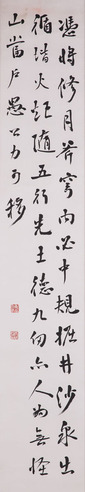 憑將修月斧穿內必中規掘井沙泉出
循階火炬隨五行先王德九仞亦人為無怪
山當戶愚公力可移